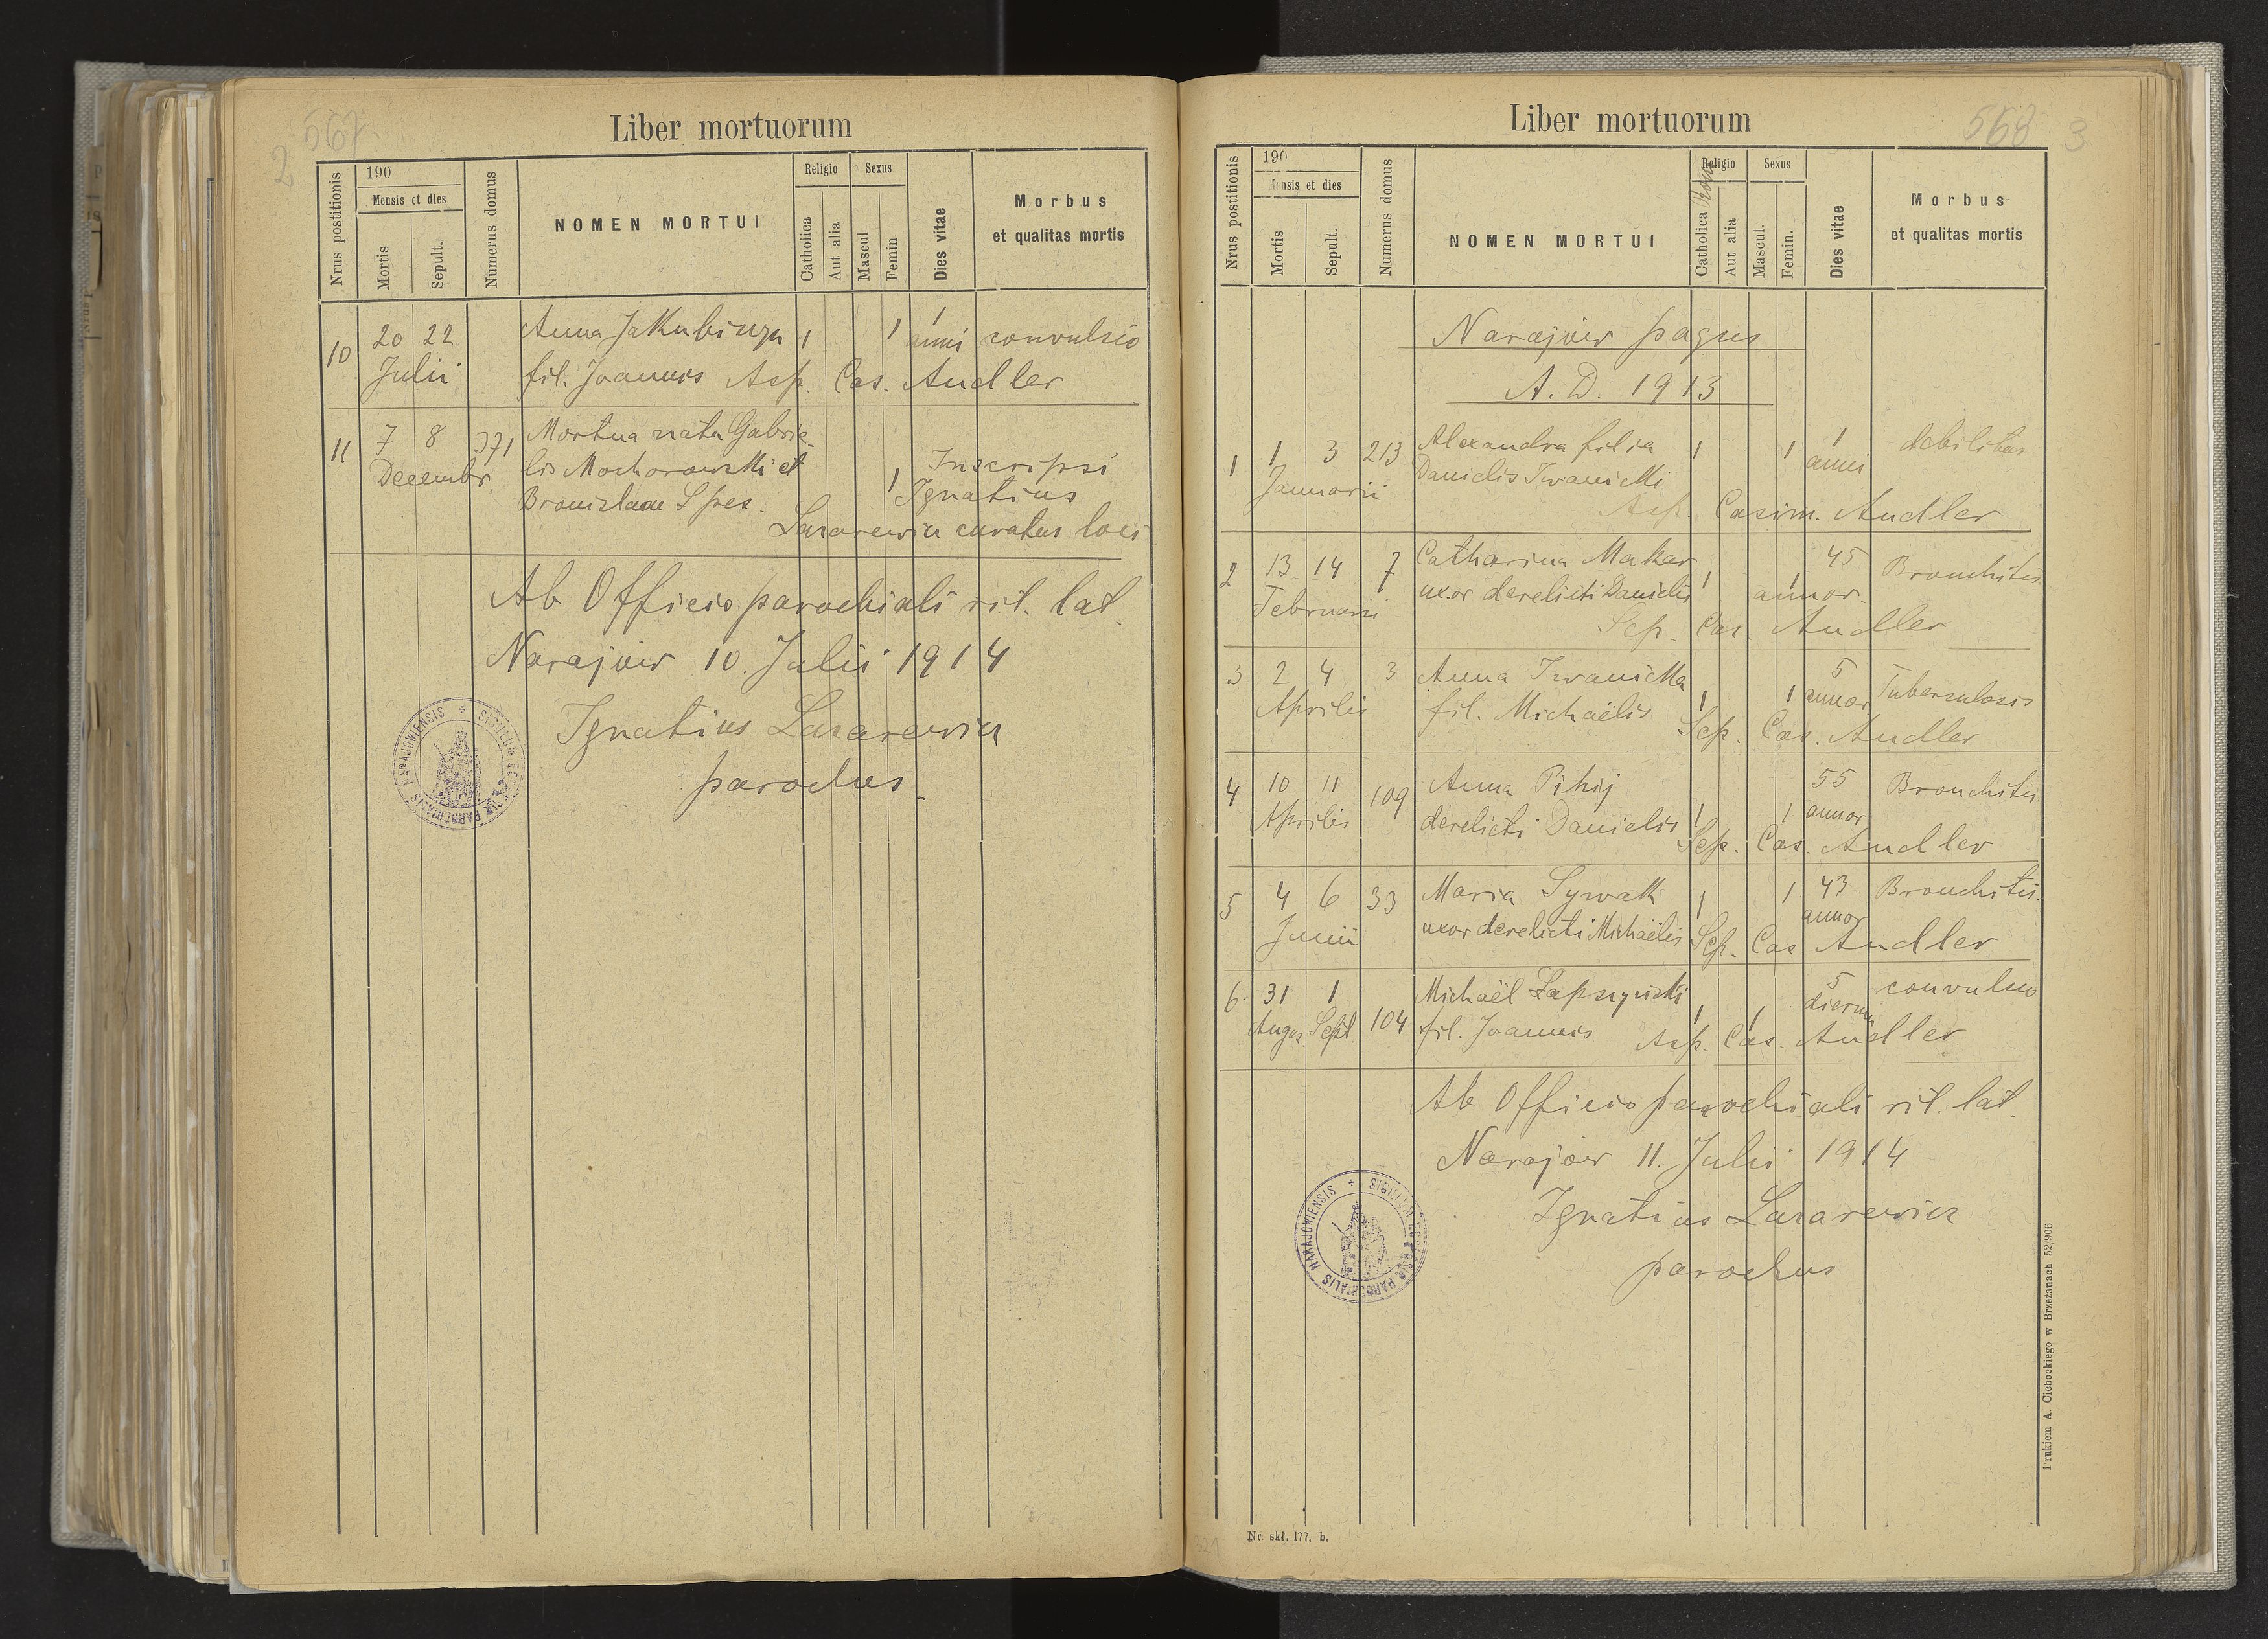 567
2
Liber mortuorum
Nrus postitionis
190
Mensis et dies
Mortis
Sepult.
Numerus domus
NOMEN MORTUI
Religio
Catholica
Aut alia
Sexus
Mascul
Femin.
Dies vitae
Morbus
et qualitas mortis
10 20 22 Anna Jakubiszyn 1 1 1 anni convulsio
Julii fil. Joannis Asp. Cas. Audler
11 7 8 371 Mortua nata Gabrie-
Decembr. lis Mochorowski et Inscripsi
Bronislaae Spes. 1 Ignatius
Lazarewicz curatus loci
Ab Officio parochiali rit. lat.
Narajow 10. Julii 1914
Ignatius Lazarewicz
parochus
NARAJOWIENSIS + SIGILLUM ECCLESIÆ PAROCHIALIS
568 3
Liber mortuorum
Nrus postitionis
190
Mensis et dies
Mortis
Sepult.
Numerus domus
NOMEN MORTUI
Religio
Catholica Rom
Aut alia
Sexus
Mascul.
Femin.
Dies vitae
Morbus
et qualitas mortis
Narajow pagus
A. D. 1913
1 1 3 213 Alexandra filia 1 1 1 anni debilitas
Januarii Danielis Iwanicki
Asp. Casim. Audler
2 13 14 7 Catharina Makar 45 Bronchitis
Februarii uxor derelicti Danielis 1 1 annor.
Sep. Cas. Audler
3 2 4 3 Anna Iwanicka 5
Aprilis fil. Michaëlis 1 1 annor Tuberculosis
Sep. Cas. Audler
4 10 11 109 Anna Pihij 55 Bronchitis
Aprilis derelicti Danielis 1 1 annor
Sep. Cas. Audler
5 4 6 33 Maria Sywak 1 1 43 Bronchitis.
Junii uxor derelicti Michaëlis annor
Sep. Cas Audler
6. 31 1 104 Michaël Łapszyński 5 convulsio
Augus. Sept. fil. Joannis 1 1 dierum
Asp. Cas. Audler
Ab Officio parochiali rit. lat.
Narajow 11. Julii 1914
Ignatius Lazarewicz
parochus
NARAJOWIENSIS + SIGILLUM ECCLESIÆ PAROCHIALIS
Nr. skł. 177. b.
321
Drukiem A. Cichockiego w Brzeżanach 52/906